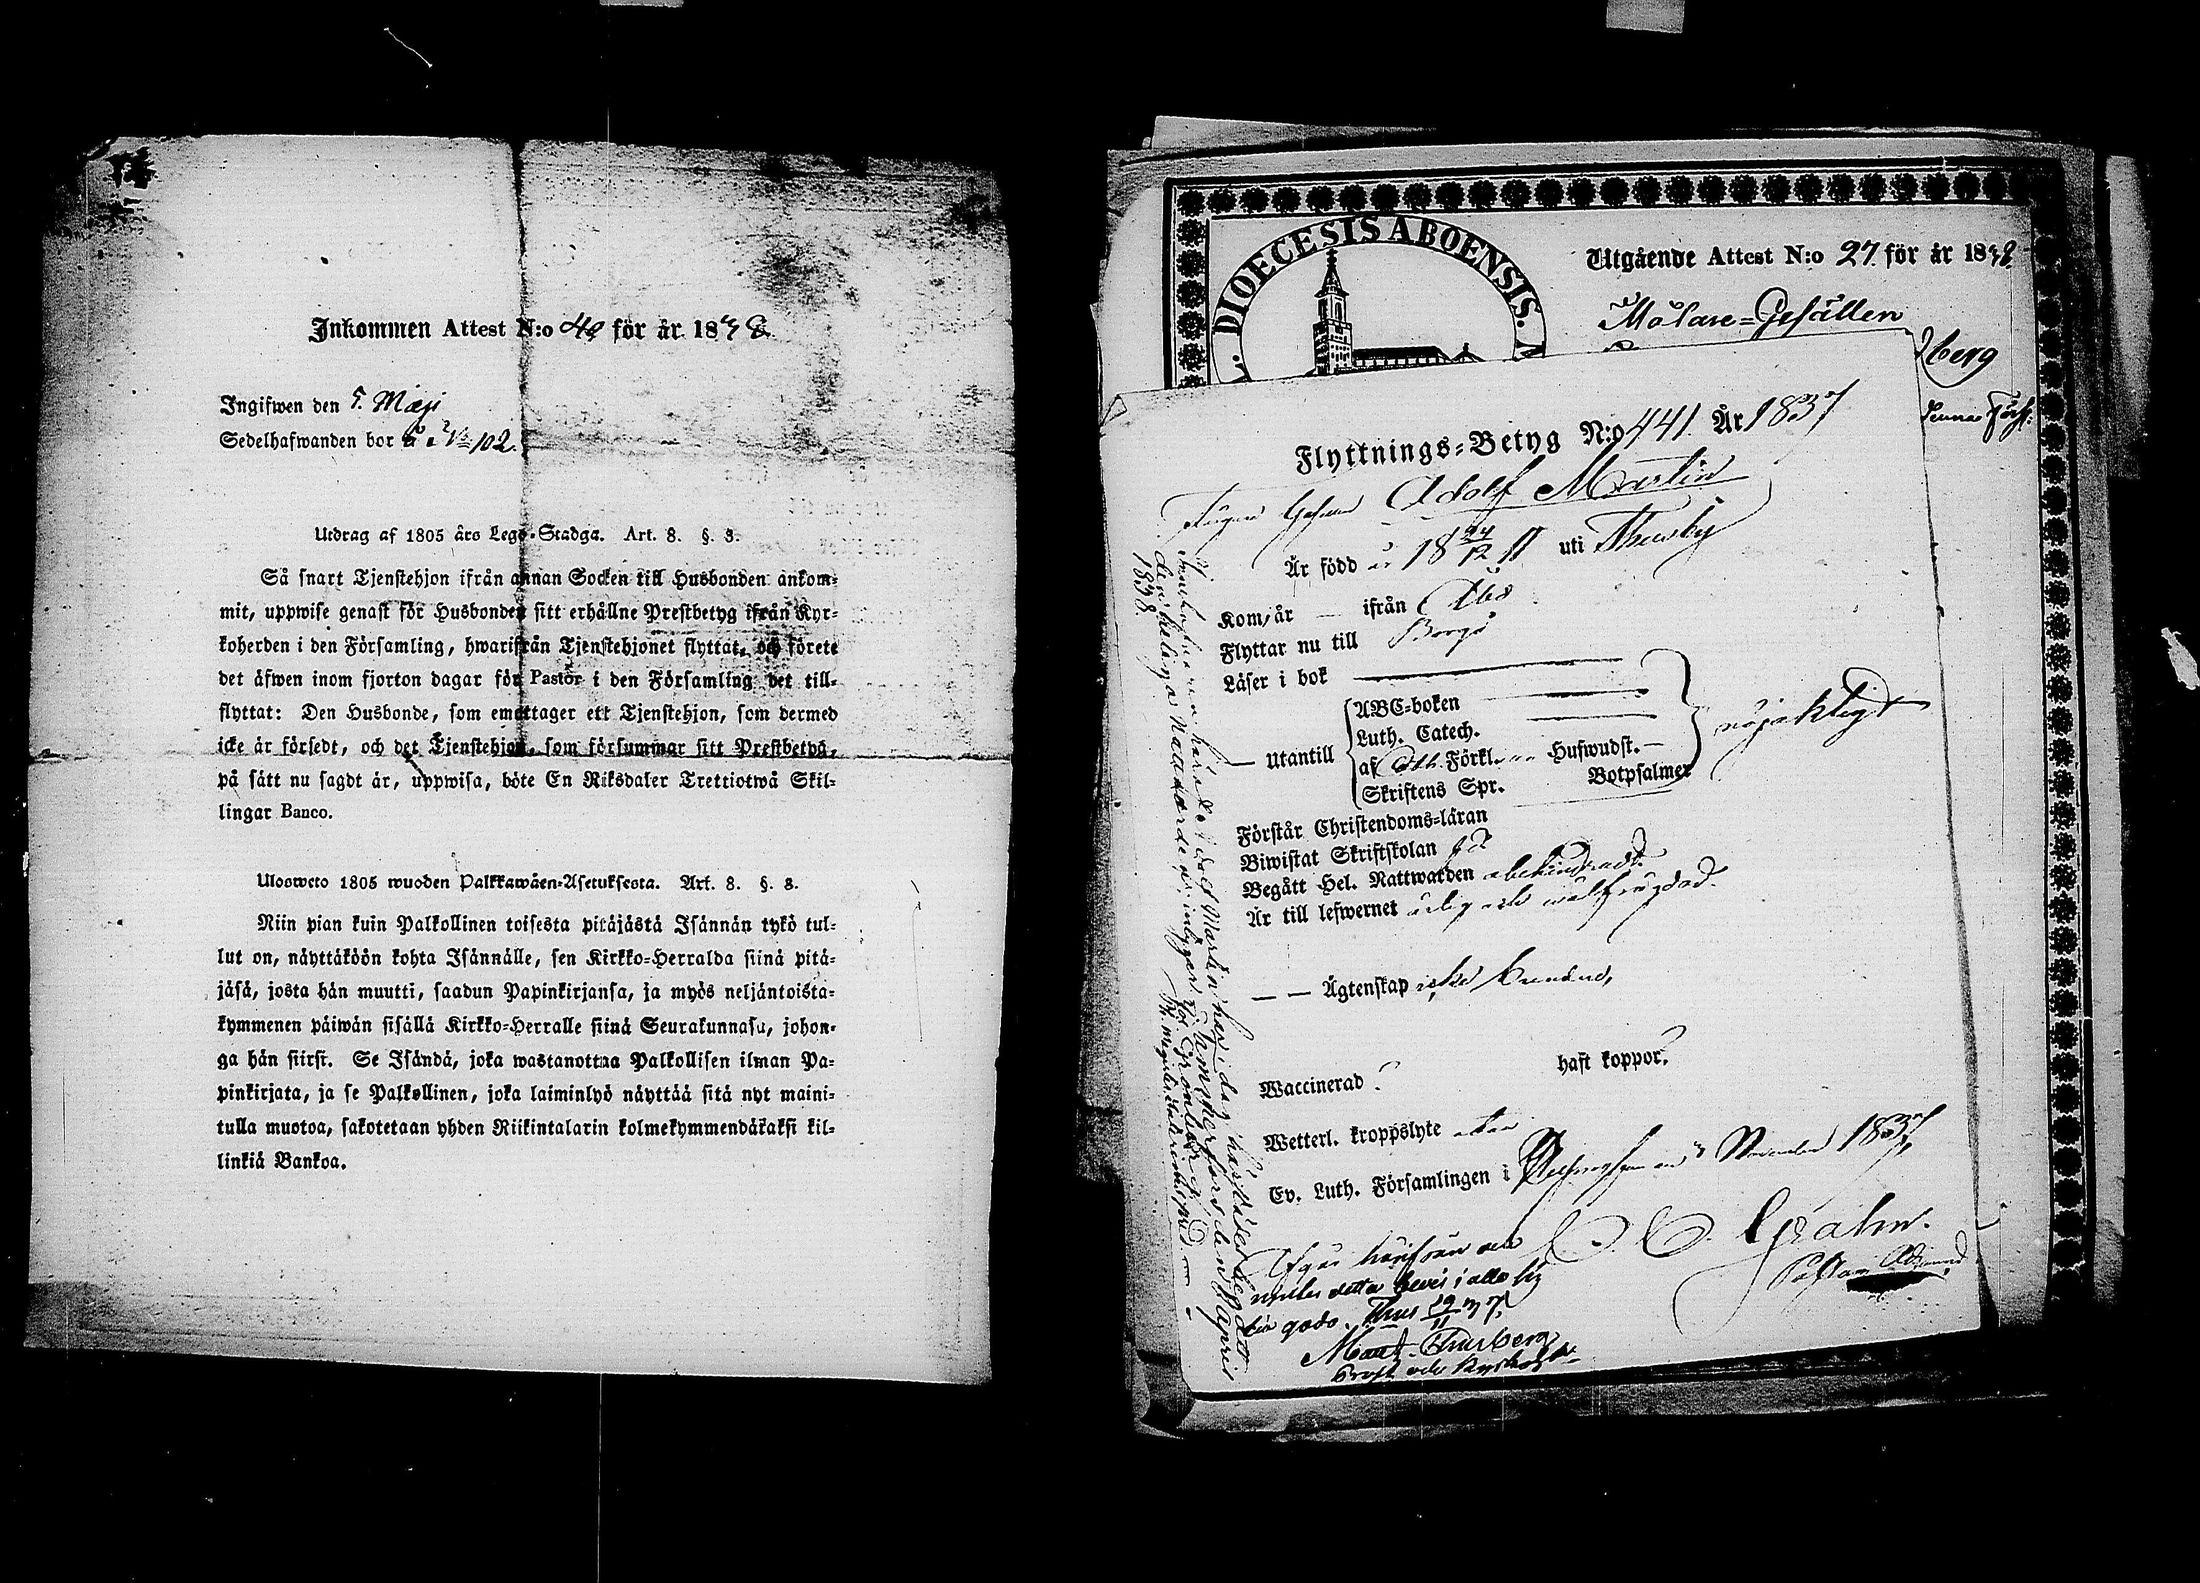 Inkommen Attest N:o 40 för år 1838.
Ingifwen den 5. Maji
Sedelhafwanden bor N 102.
Utdrag af 1805 års Lego-Stadga. Art. 8. §. 8.
Så snart Tjenstehjon ifrån annan Socken till Husbonden ankom-
mit, uppwise genast för Husbonden sitt erhållne Prestbetyg ifrån Kyr-
koherden i den Församling, hwarifrån Tjenstehjonet flyttat, och förete
det äfwen inom fjorton dagar för Pastor i den Församling det till-
flyttat: Den Husbonde, som emottager ett Tjenstehjon, som dermed
icke är försedt, och det Tjenstehjon, som försummar sitt Prestbetyg,
på sätt nu sagdt är, uppwisa, böte En Riksdaler Trettiotwå Skil-
lingar Banco.
Ulosweto 1805 wuoden Palkkawäen-Asetuksesta. Art. 8. §. 8.
Niin pian kuin Palkollinen toisesta pitäjästä Isännän tykö tul-
lut on, näyttäköön kohta Isännälle, sen Kirkko-Herralda siinä pitä-
jäsä, josta hän muutti, saadun Papinkirjansa, ja myös neljäntoista-
kymmenen päiwän sisällä Kirkko-Herralle siinä Seurakunnasa, johon-
ga hän siirst. Se Isändä, joka wastanottaa Palkollisen ilman Pa-
pinkirjata, ja se Palkollinen, joka laiminlyö näyttää sitä nyt maini-
tulla muotoa, sakotetaan yhden Riikintalarin kolmekymmendäkaksi kil-
linkiä Bankoa.
DIOECESIS ABOENSIS.
Utgående Attest N:o 27. för år 1838.
Målare-Gesällen
berg
Flyttnings-Betyg N:o 441. År 1837
Adolf Martin
Är född 18 24/12 11 uti Thusby
Kom, år — ifrån Åbo
Flyttar nu till Borgå
Läser i bok
— utantill
ABC-boken
Luth. Catech.
af Förkl. Huswudst. —
Skriftens Spr. Botpsalmer
nöjaktigt
Förstår Christendoms-läran
Biwistat Skriftskolan
Begått Hel. Nattwarden obehindradt.
Är till lefwernet ärlig och wälfrägdad.
— — Ägtenskap
Waccinerad? haft koppor?
Wetterl. kroppslyte utan
Ev. Luth. Församlingen i Helsingfors November 1837.
Grahn.
Pastor
Afgår härifrån och
detta bevis i allo
godo. Thus 19/11 37.
Mart. Thusberg
Innehafwaren häraf Adolf Martin har i dag härstädes begått
den heliga Nattwarden, Tammerfors den April
1838.